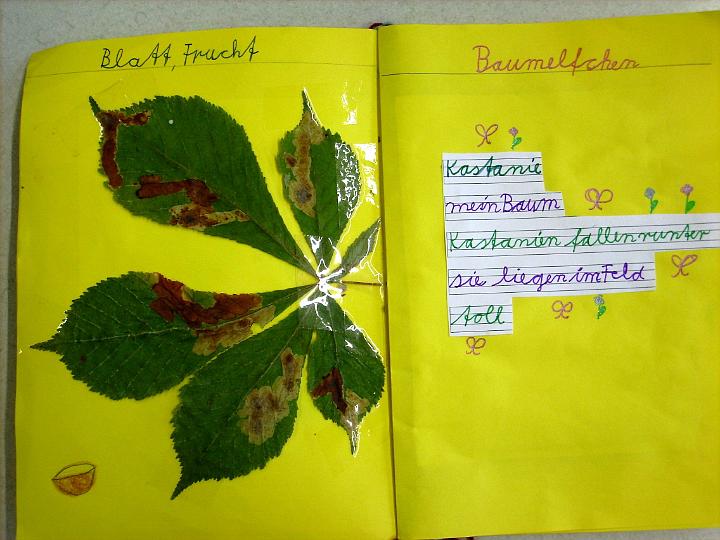 Blatt, Frucht
Baumelfchen
Kastanie
mein Baum
Kastanien fallen runter
sie liegen im Feld
toll